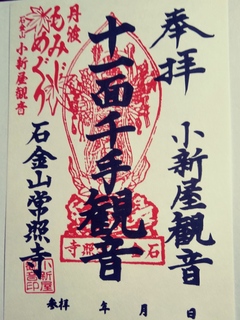 奉拝
小新屋観音
十一面千手観音
丹波
もみじ
めぐり
石金山
小新屋観音
石金山常照寺
石 照寺
参拝 年 月 日